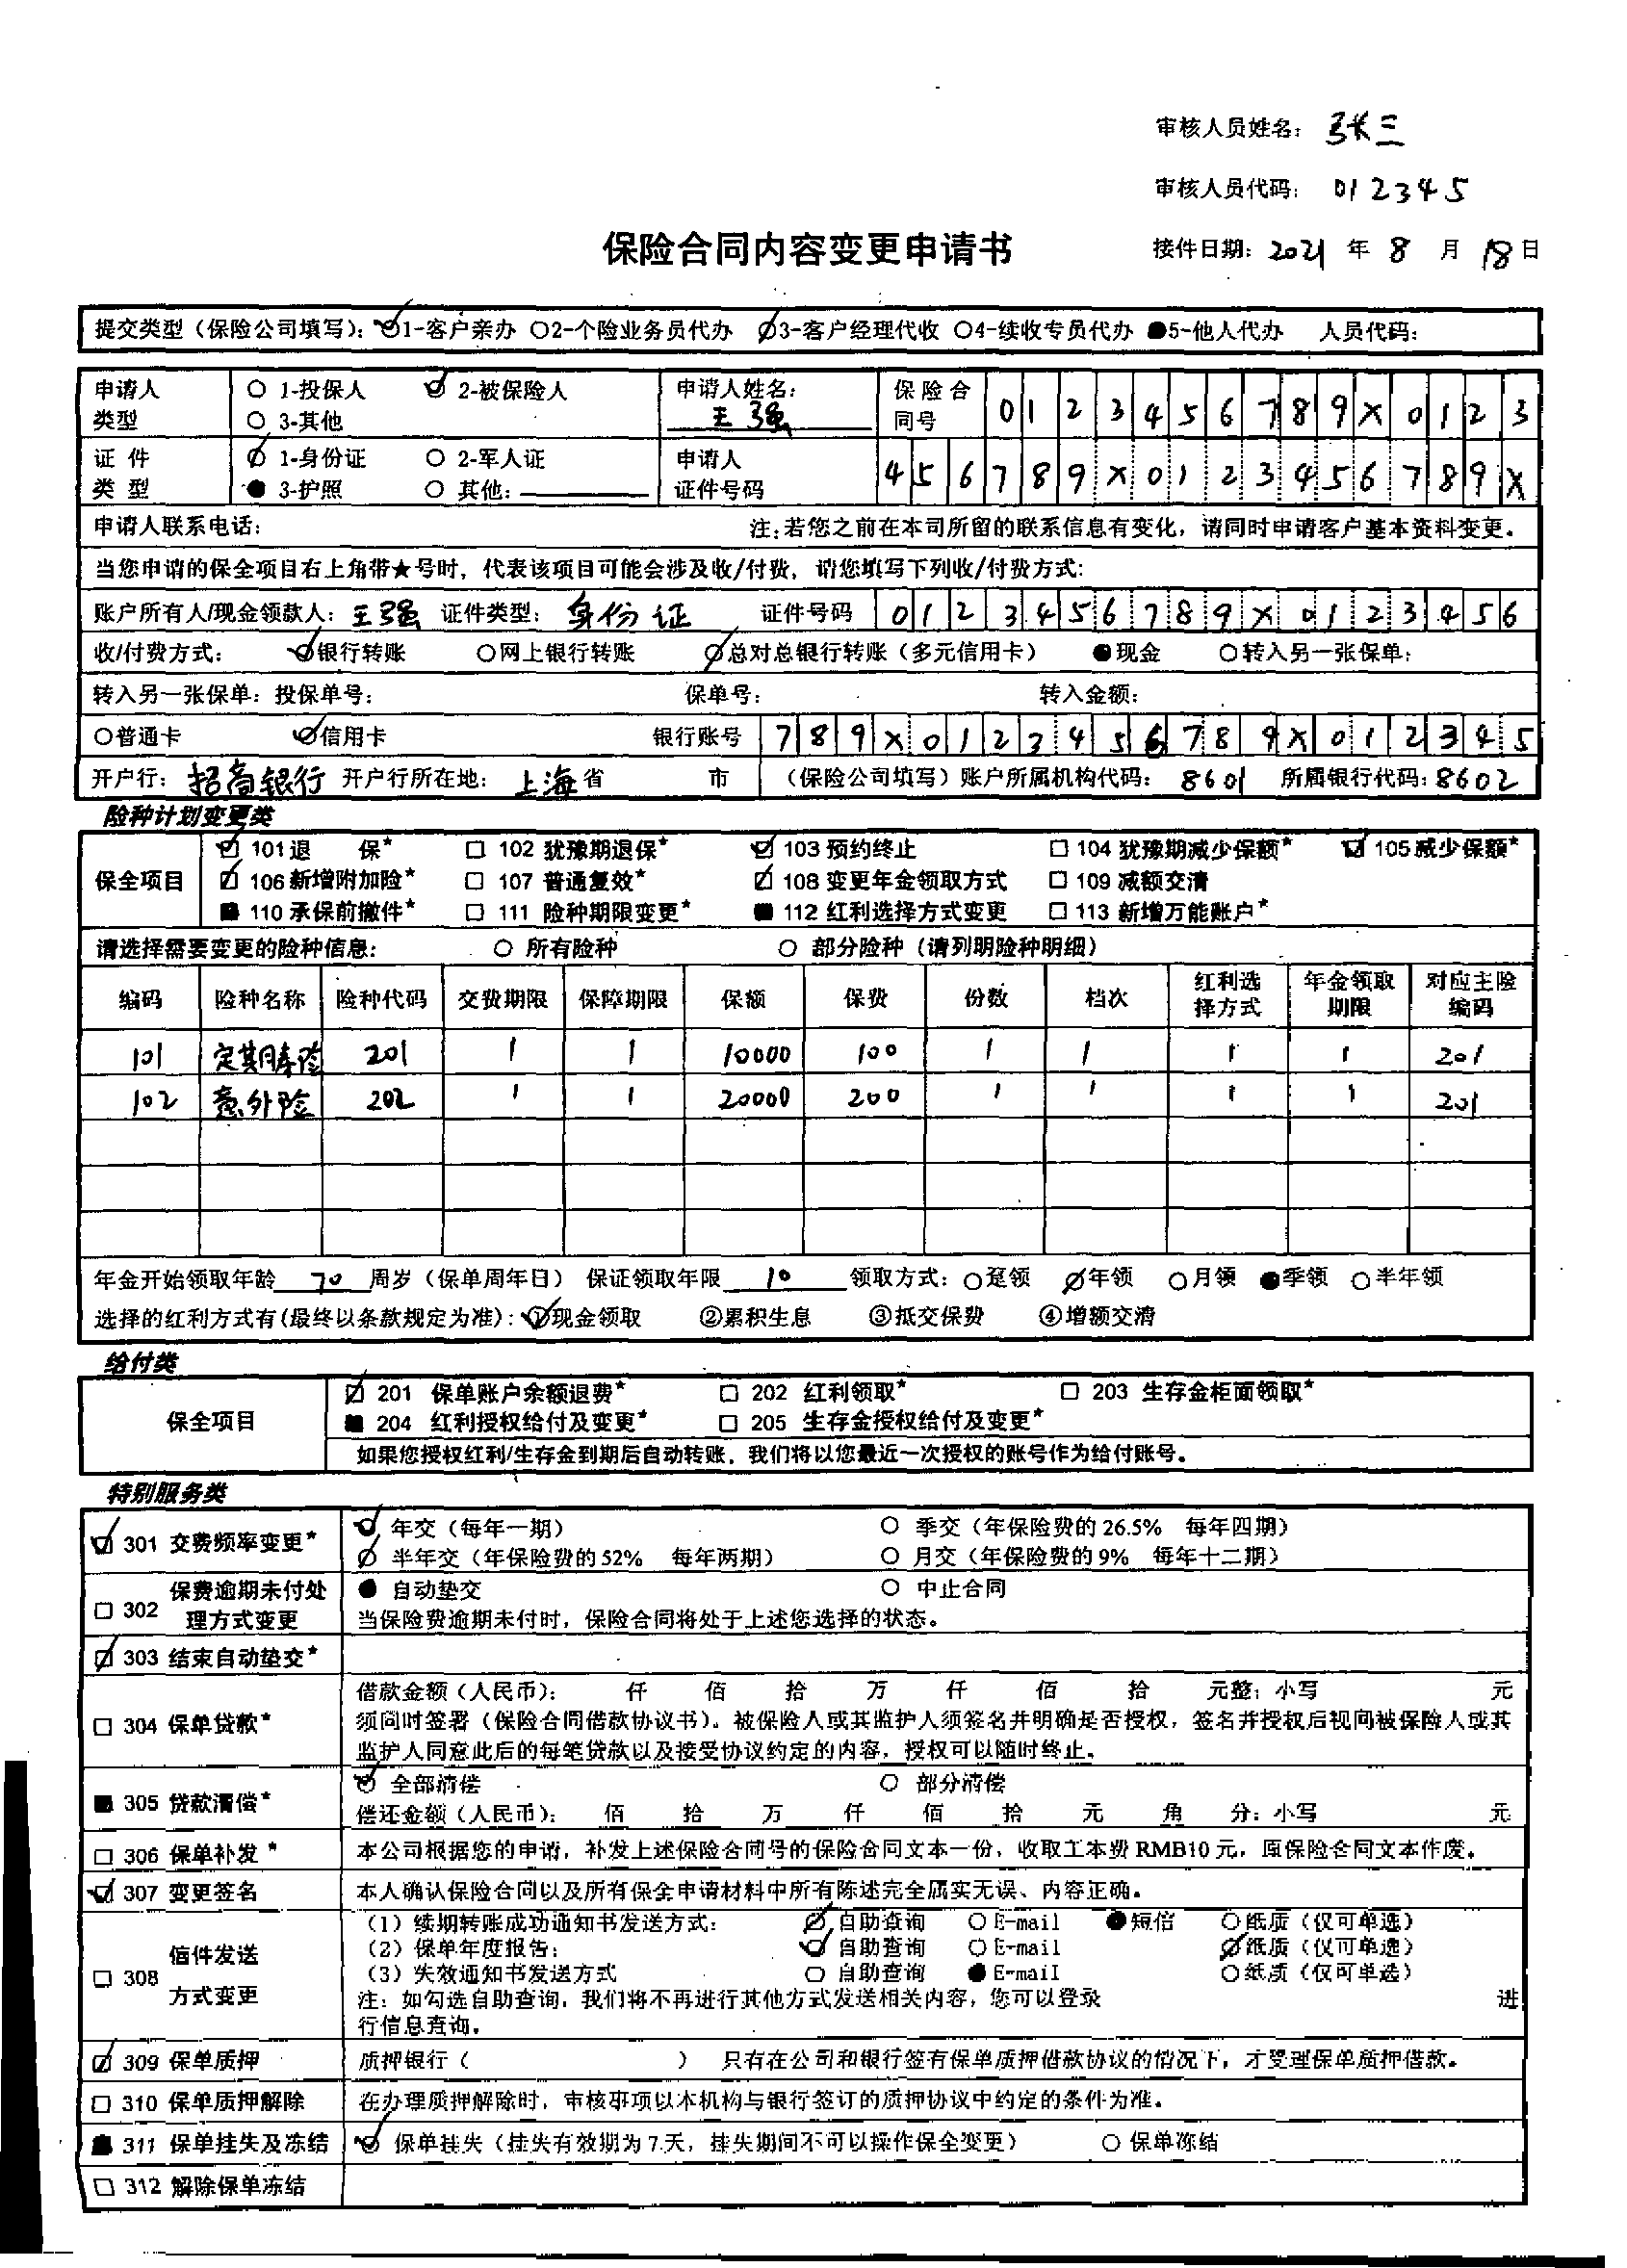 审核人员姓名: 张三
审核人员代码: 012345
保险合同内容变更申请书
接件日期: 2021 年 8 月 18 日
提交类型(保险公司填写): ☑1-客户亲办 ○2-个险业务员代办 ☑3-客户经理代收 ○4-续收专员代办 ●5-他人代办 人员代码:
申请人类型 ○ 1-投保人 ☑ 2-被保险人 ○ 3-其他 申请人姓名: 王强 保险合同号 0123456789X0123
证件类型 ☑ 1-身份证 ○ 2-军人证 ● 3-护照 ○ 其他: 申请人证件号码 456789X0123456789X
申请人联系电话: 注:若您之前在本司所留的联系信息有变化,请同时申请客户基本资料变更。
当您申请的保全项目右上角带★号时,代表该项目可能会涉及收/付费,请您填写下列收/付费方式:
账户所有人/现金领款人: 王强 证件类型: 身份证 证件号码 0123456789X0123456
收/付费方式: ☑银行转账 ○网上银行转账 ☑总对总银行转账(多元信用卡) ●现金 ○转入另一张保单:
转入另一张保单: 投保单号: 保单号: 转入金额:
○普通卡 ☑信用卡 银行账号 789X0123456789X012345
开户行: 招商银行 开户行所在地: 上海省 市 (保险公司填写)账户所属机构代码: 8601 所属银行代码: 8602
险种计划变更类
保全项目
☑ 101 退 保* □ 102 犹豫期退保* ☑ 103 预约终止 □ 104 犹豫期减少保额* ☑ 105 减少保额*
☑ 106 新增附加险* □ 107 普通复效* ☑ 108 变更年金领取方式 □ 109 减额交清
■ 110 承保前撤件* □ 111 险种期限变更* ■ 112 红利选择方式变更 □ 113 新增万能账户*
请选择需要变更的险种信息: ○ 所有险种 ○ 部分险种(请列明险种明细)
编码 险种名称 险种代码 交费期限 保障期限 保额 保费 份数 档次 红利选择方式 年金领取期限 对应主险编码
101 定期寿险 201 1 1 10000 100 1 1 1 1 201
102 意外险 202 1 1 20000 200 1 1 1 1 201
年金开始领取年龄 70 周岁(保单周年日) 保证领取年限 10 领取方式: ○趸领 ☑年领 ○月领 ●季领 ○半年领
选择的红利方式有(最终以条款规定为准): ①现金领取 ②累积生息 ③抵交保费 ④增额交清
给付类
保全项目
☑ 201 保单账户余额退费* □ 202 红利领取* □ 203 生存金柜面领取*
■ 204 红利授权给付及变更* □ 205 生存金授权给付及变更*
如果您授权红利/生存金到期后自动转账,我们将以您最近一次授权的账号作为给付账号。
特别服务类
☑ 301 交费频率变更* ☑ 年交(每年一期) ○ 季交(年保险费的 26.5% 每年四期)
☑ 半年交(年保险费的 52% 每年两期) ○ 月交(年保险费的 9% 每年十二期)
□ 302 保费逾期未付处理方式变更 ● 自动垫交 ○ 中止合同
当保险费逾期未付时,保险合同将处于上述您选择的状态。
☑ 303 结束自动垫交*
□ 304 保单贷款* 借款金额(人民币): 仟 佰 拾 万 仟 佰 拾 元整: 小写 元
须同时签署(保险合同借款协议书)。被保险人或其监护人须签名并明确是否授权,签名并授权后视同被保险人或其
监护人同意此后的每笔贷款以及接受协议约定的内容,授权可以随时终止。
■ 305 贷款清偿* ☑ 全部清偿 ○ 部分清偿
偿还金额(人民币): 佰 拾 万 仟 佰 拾 元 角 分: 小写 元
□ 306 保单补发* 本公司根据您的申请,补发上述保险合同号的保险合同文本一份,收取工本费 RMB10 元,原保险合同文本作废。
☑ 307 变更签名 本人确认保险合同以及所有保全申请材料中所有陈述完全属实无误、内容正确。
□ 308 信件发送方式变更
(1)续期转账成功通知书发送方式: ☑ 自助查询 ○ E-mail ●短信 ○纸质(仅可单选)
(2)保单年度报告: ☑ 自助查询 ○ E-mail ☑纸质(仅可单选)
(3)失效通知书发送方式 ○ 自助查询 ● E-mail ○纸质(仅可单选)
注: 如勾选自助查询,我们将不再进行其他方式发送相关内容,您可以登录 进
行信息查询。
☑ 309 保单质押 质押银行( ) 只有在公司和银行签有保单质押借款协议的情况下,才受理保单质押借款。
□ 310 保单质押解除 在办理质押解除时,审核事项以本机构与银行签订的质押协议中约定的条件为准。
■ 311 保单挂失及冻结 ☑ 保单挂失(挂失有效期为 7 天,挂失期间不可以操作保全变更) ○ 保单冻结
□ 312 解除保单冻结